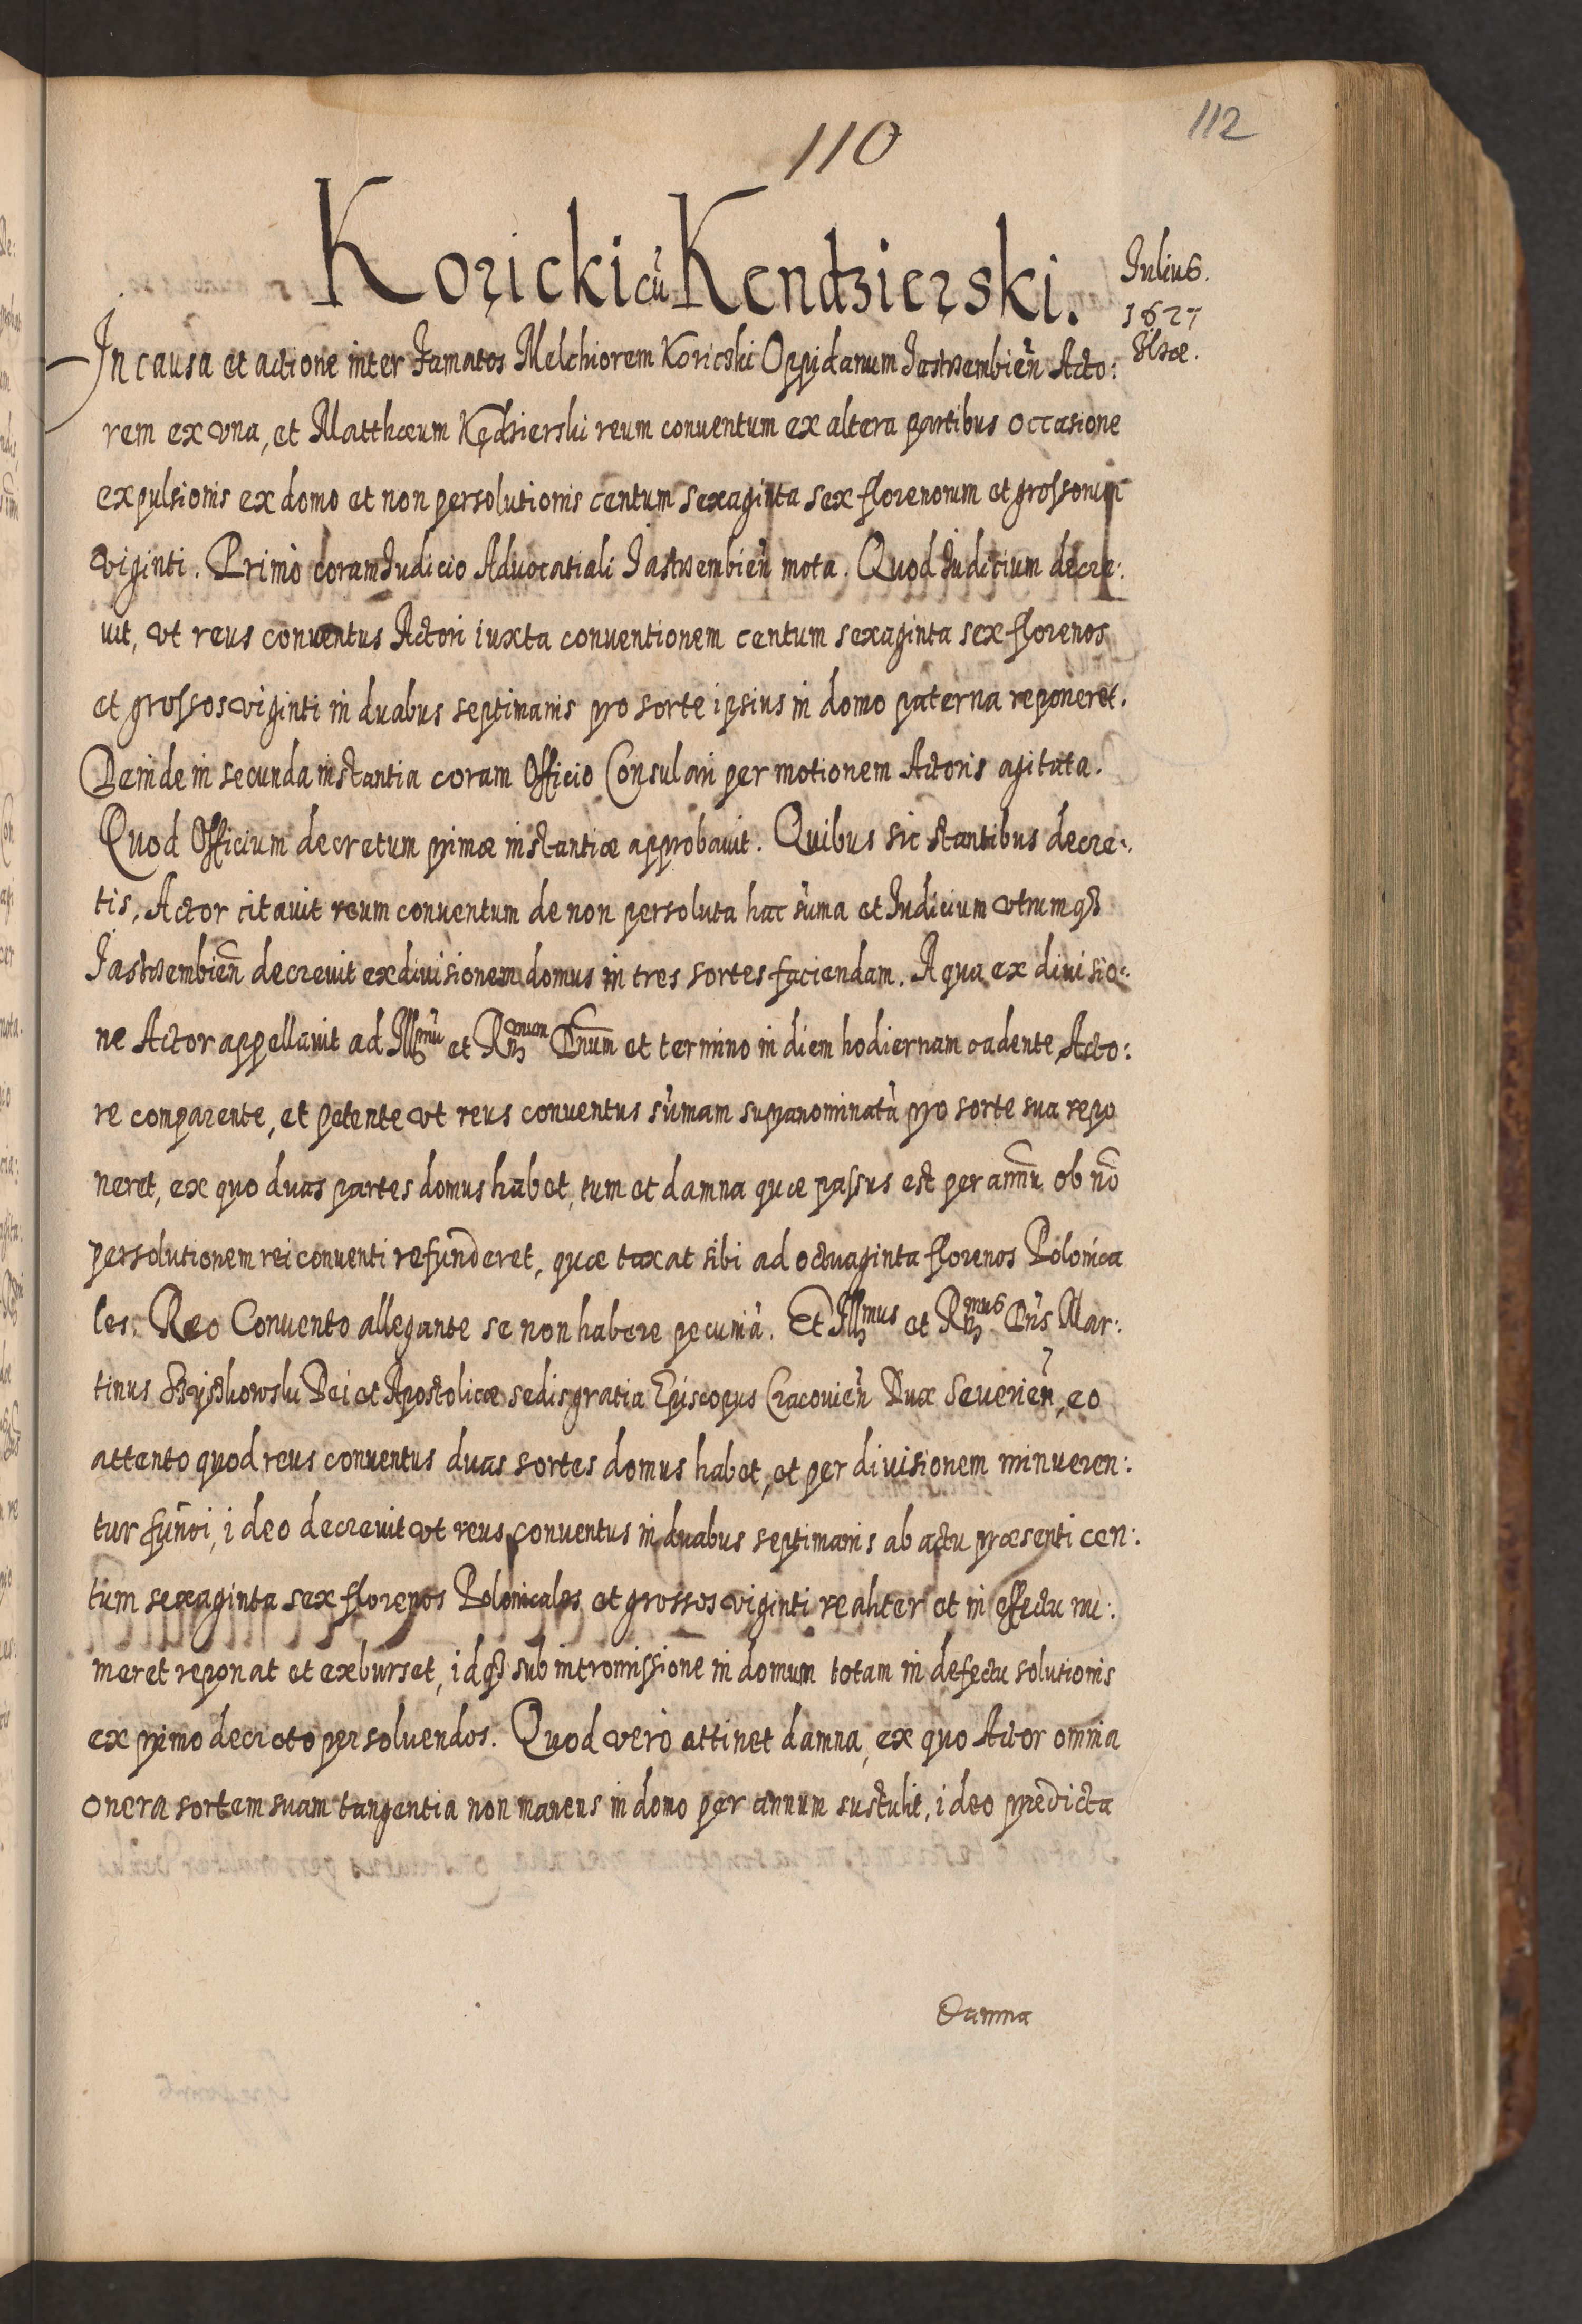 112
110
Koricki cũ Kendzierski.
Iulius.
1627
Ilzæ.
In causa et actione inter Famatos Melchiorem Koricski Oppidanum Jastrzembień Acto:
rem ex vna, et Matthæum Kędzierski reum conuentum ex altera partibus occasione
expulsionis ex domo et non persolutionis centum sexaginta sex florenorum et grossorum
viginti. Primò coram Iudicio Aduocatiali Jastrzembień mota. Quod Iudicium decre:
uit, vt reus conuentus Actori iuxta conuentionem centum sexaginta sex florenos
et grossos viginti in duabus septimanis pro sorte ipsius in domo paterna reponeret.
Deinde in secunda instantia coram Officio Consulari per motionem Actoris agitata.
Quod Officium decretum primæ instantiæ approbauit. Quibus sic stantibus decre:
tis, Actor citauit reum conuentum de non persoluta hac suma et Iudicium vtrumq3
Jastrzembień decreuit exdiuisionem domus in tres sortes faciendam. A qua exdiuisio:
ne Actor appellauit ad Illmũ et Rnmum Dnum et termino in diem hodiernam cadente Acto:
re comparente, et petente vt reus conuentus sumam supranominatã pro sorte sua repo
neret, ex quo duas partes domus habet, tum et damna quæ passus est per annũ ob nõ
persolutionem rei conuenti refunderet, quæ taxat sibi ad octuaginta florenos Polonica
les. Reo Conuento allegante se non habere pecuniã. Et Illmus et Rnmus Dns Mar:
tinus Szyszkowski Dei et Apostolicæ sedis gratia Episcopus Cracouień Dux Seuerień, eo
attento quod reus conuentus duas sortes domus habet, et per diuisionem minueren:
tur fundi, ideo decreuit vt reus conuentus in duabus septimanis ab actu præsenti cen:
tum sexaginta sex florenos Polonicales et grossos viginti realiter et in effectu nu:
meret reponat et exburset, idq3 sub intromissione in domum totam in defectu solutionis
ex primo decreto persoluendos. Quod verò attinet damna, ex quo Actor omnia
onera sortem suam tangentia non manens in domo per annum sustulit, ideo prædicta
Damna